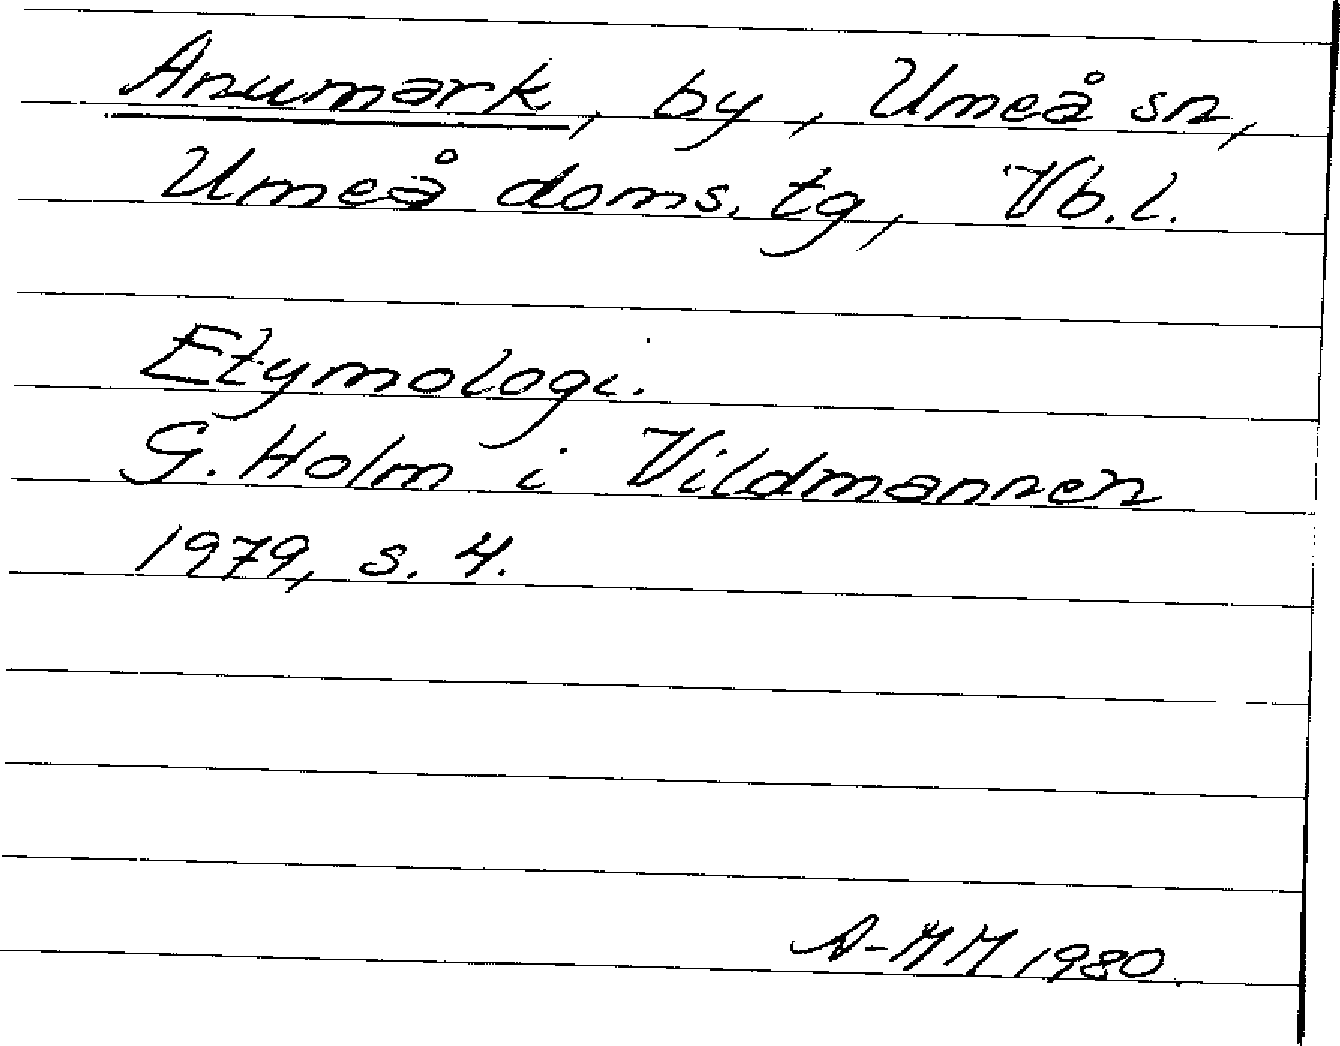 Anumark, by, Umeå sn,
Umeå doms. tg, Vb.l.
Etymologi.
G. Holm i Vildmannen
1979, s. 4.
A-MM 1980.